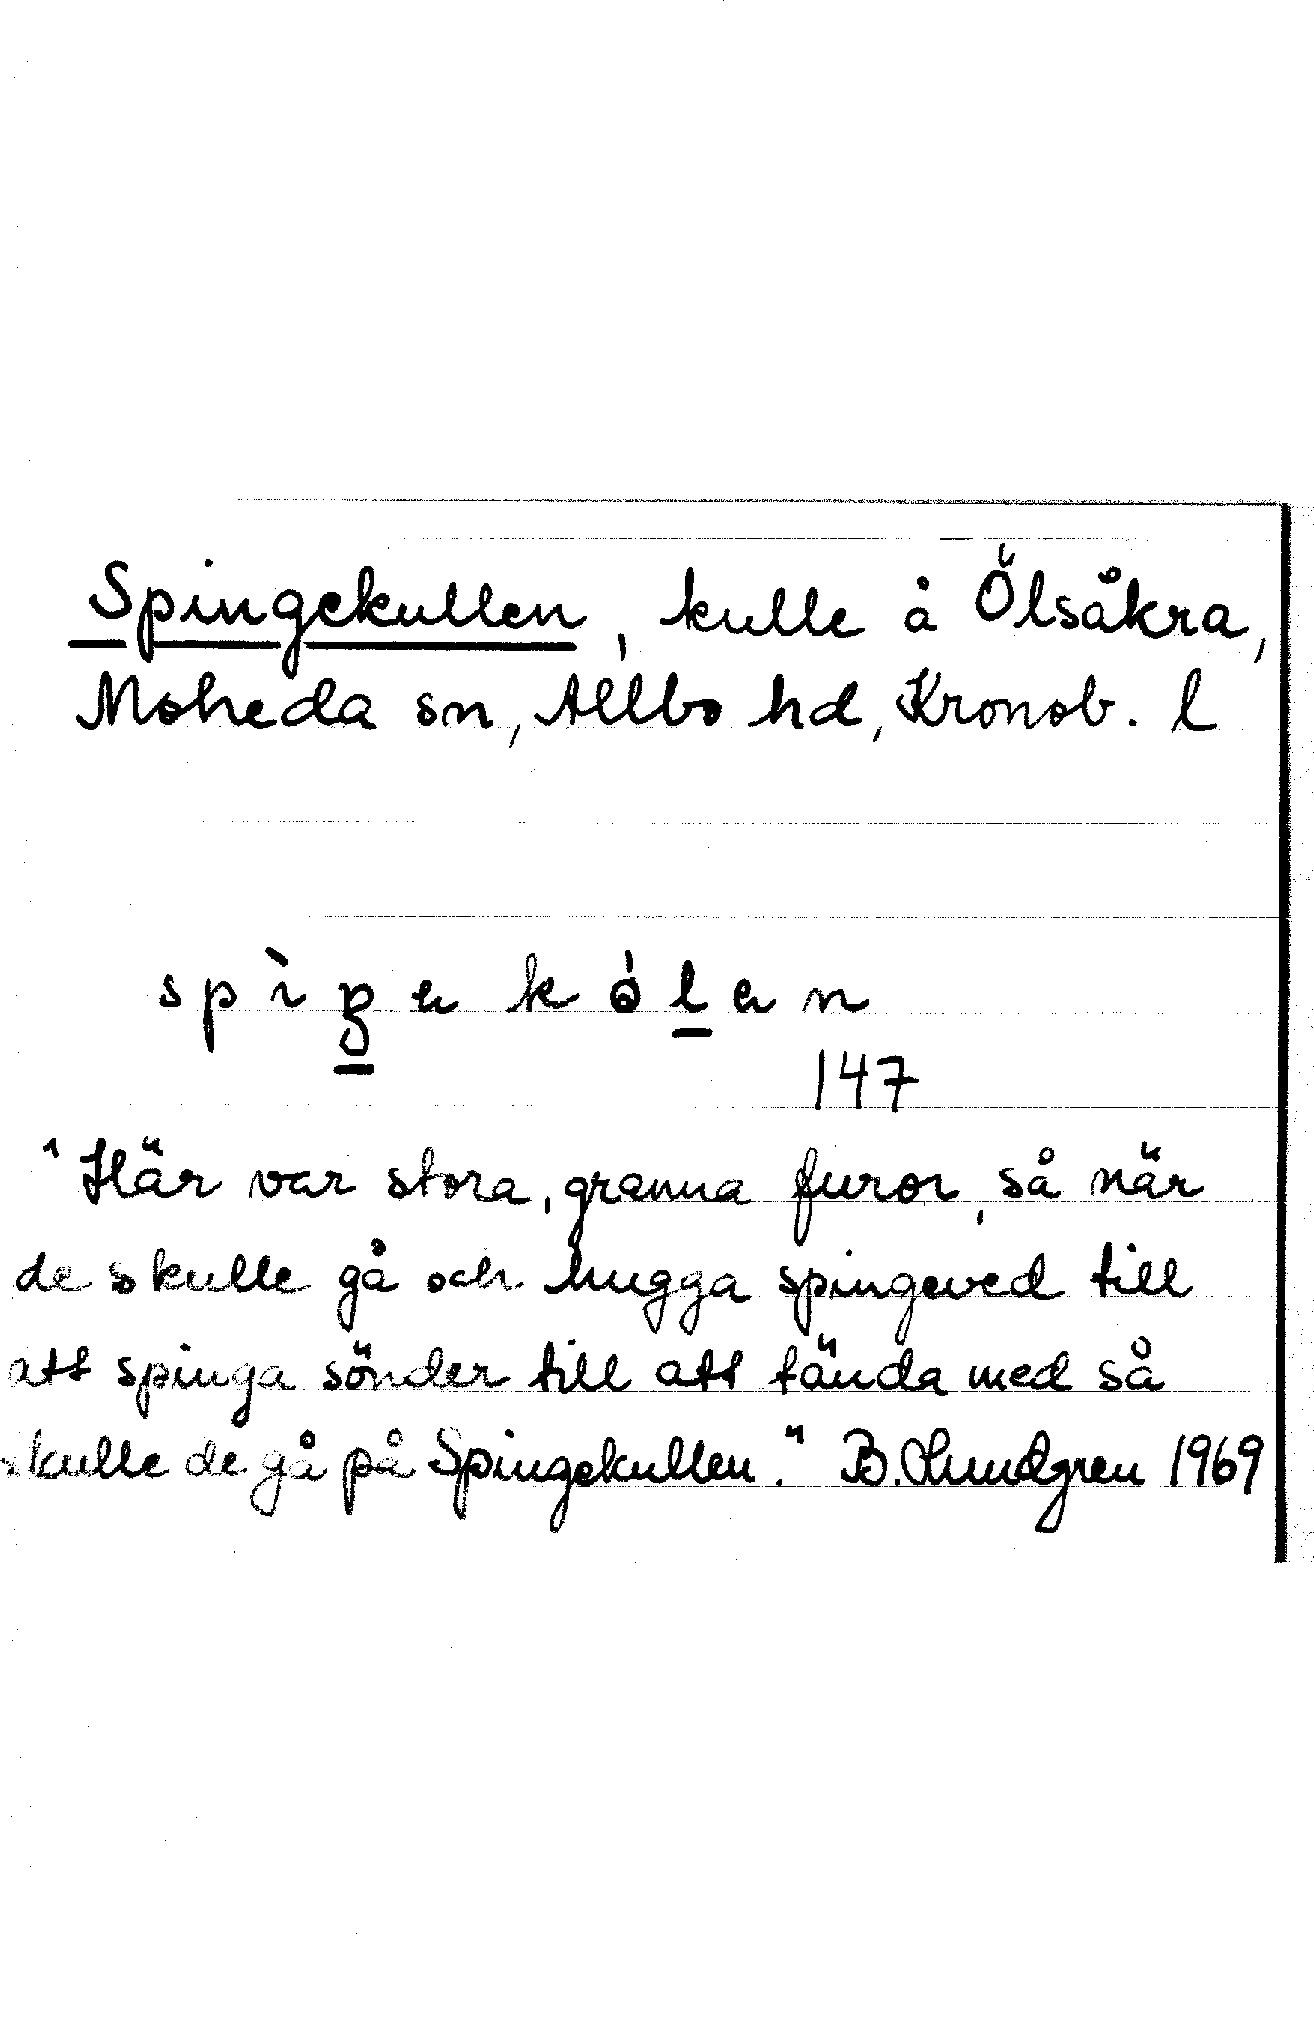 Spingekullen, kulle å Ölsåkra,
Moheda sn, Allbo hd, Kronob. l
147
"Här var stora, granna furor, så när
de skulle gå och hugga spingeved till
att spinga sönder till att tända med så
skulle de gå på Spingekullen." B. Lundgren 1969